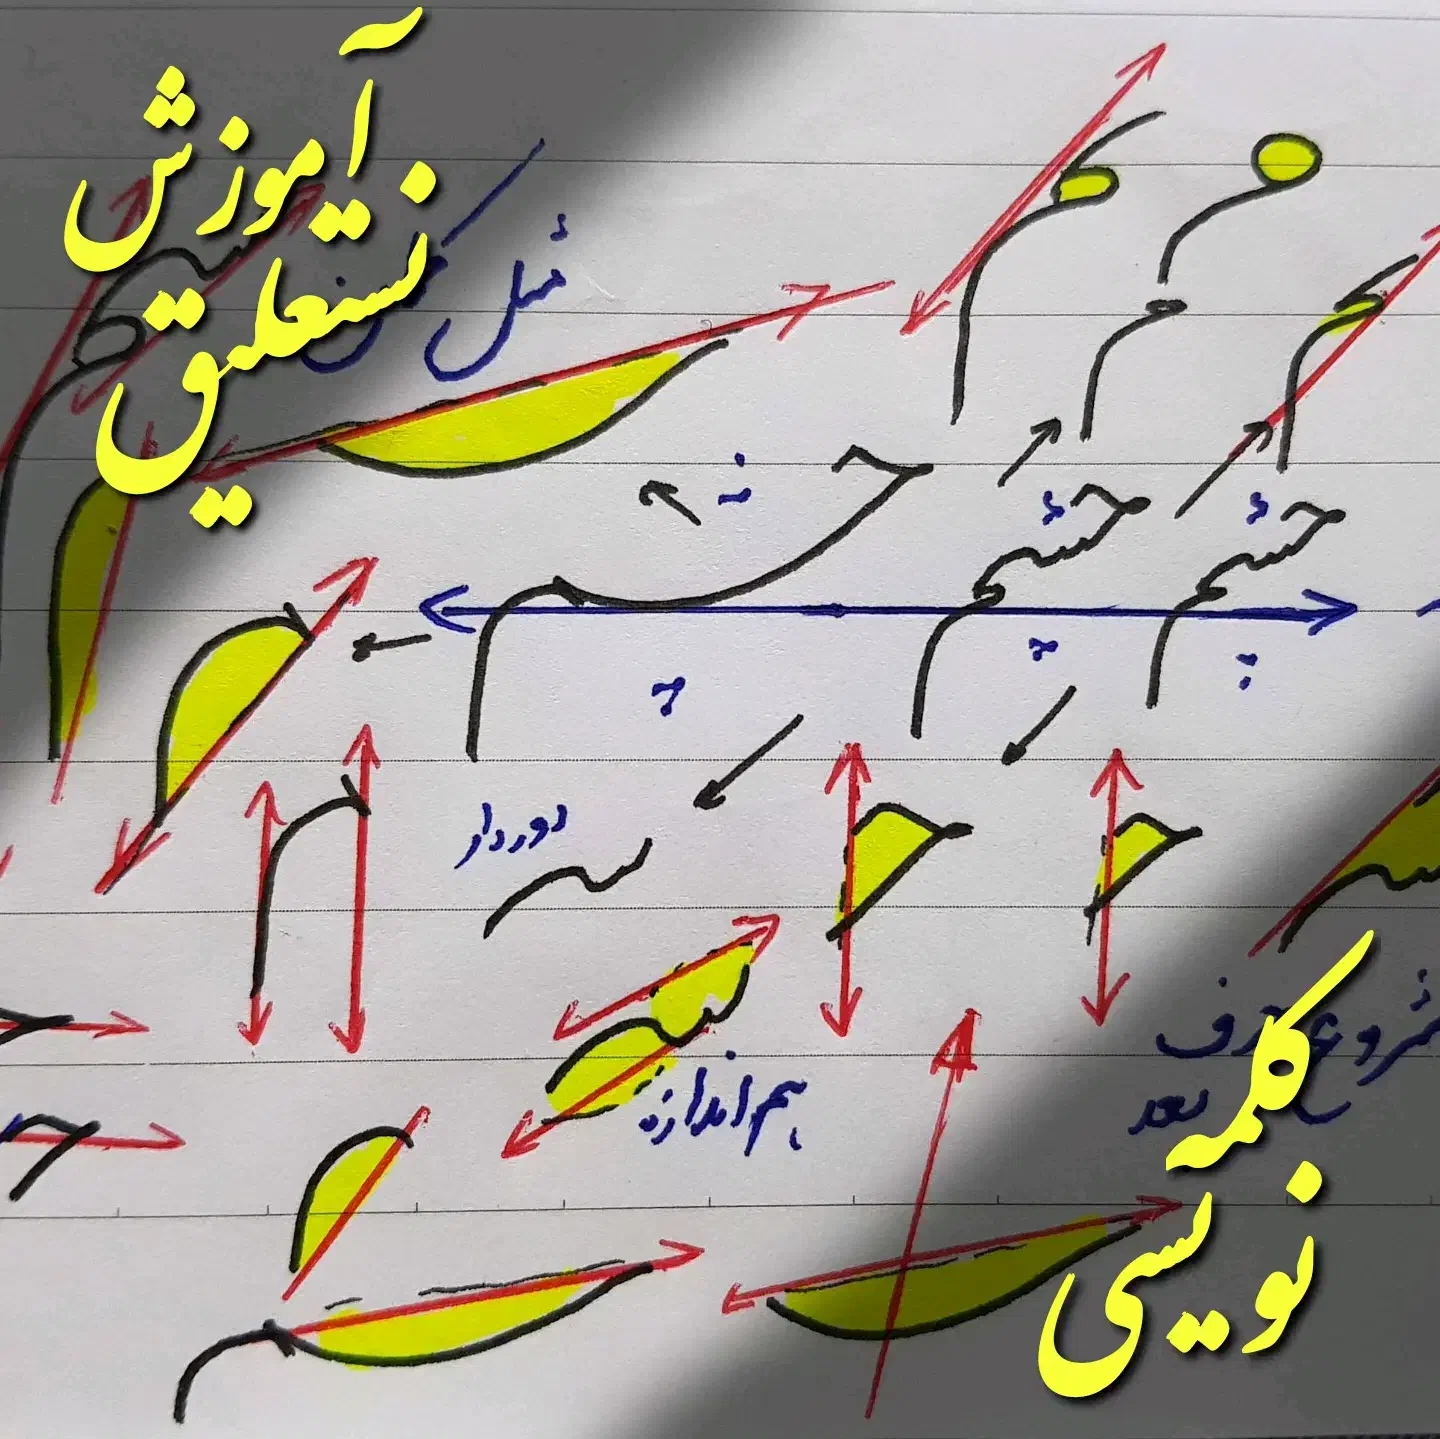 آموزش
نستعلیق
مثل
چشم
چشم
دوردار
هم اندازه
شروع حرف
بعد
کلمه
نویسی